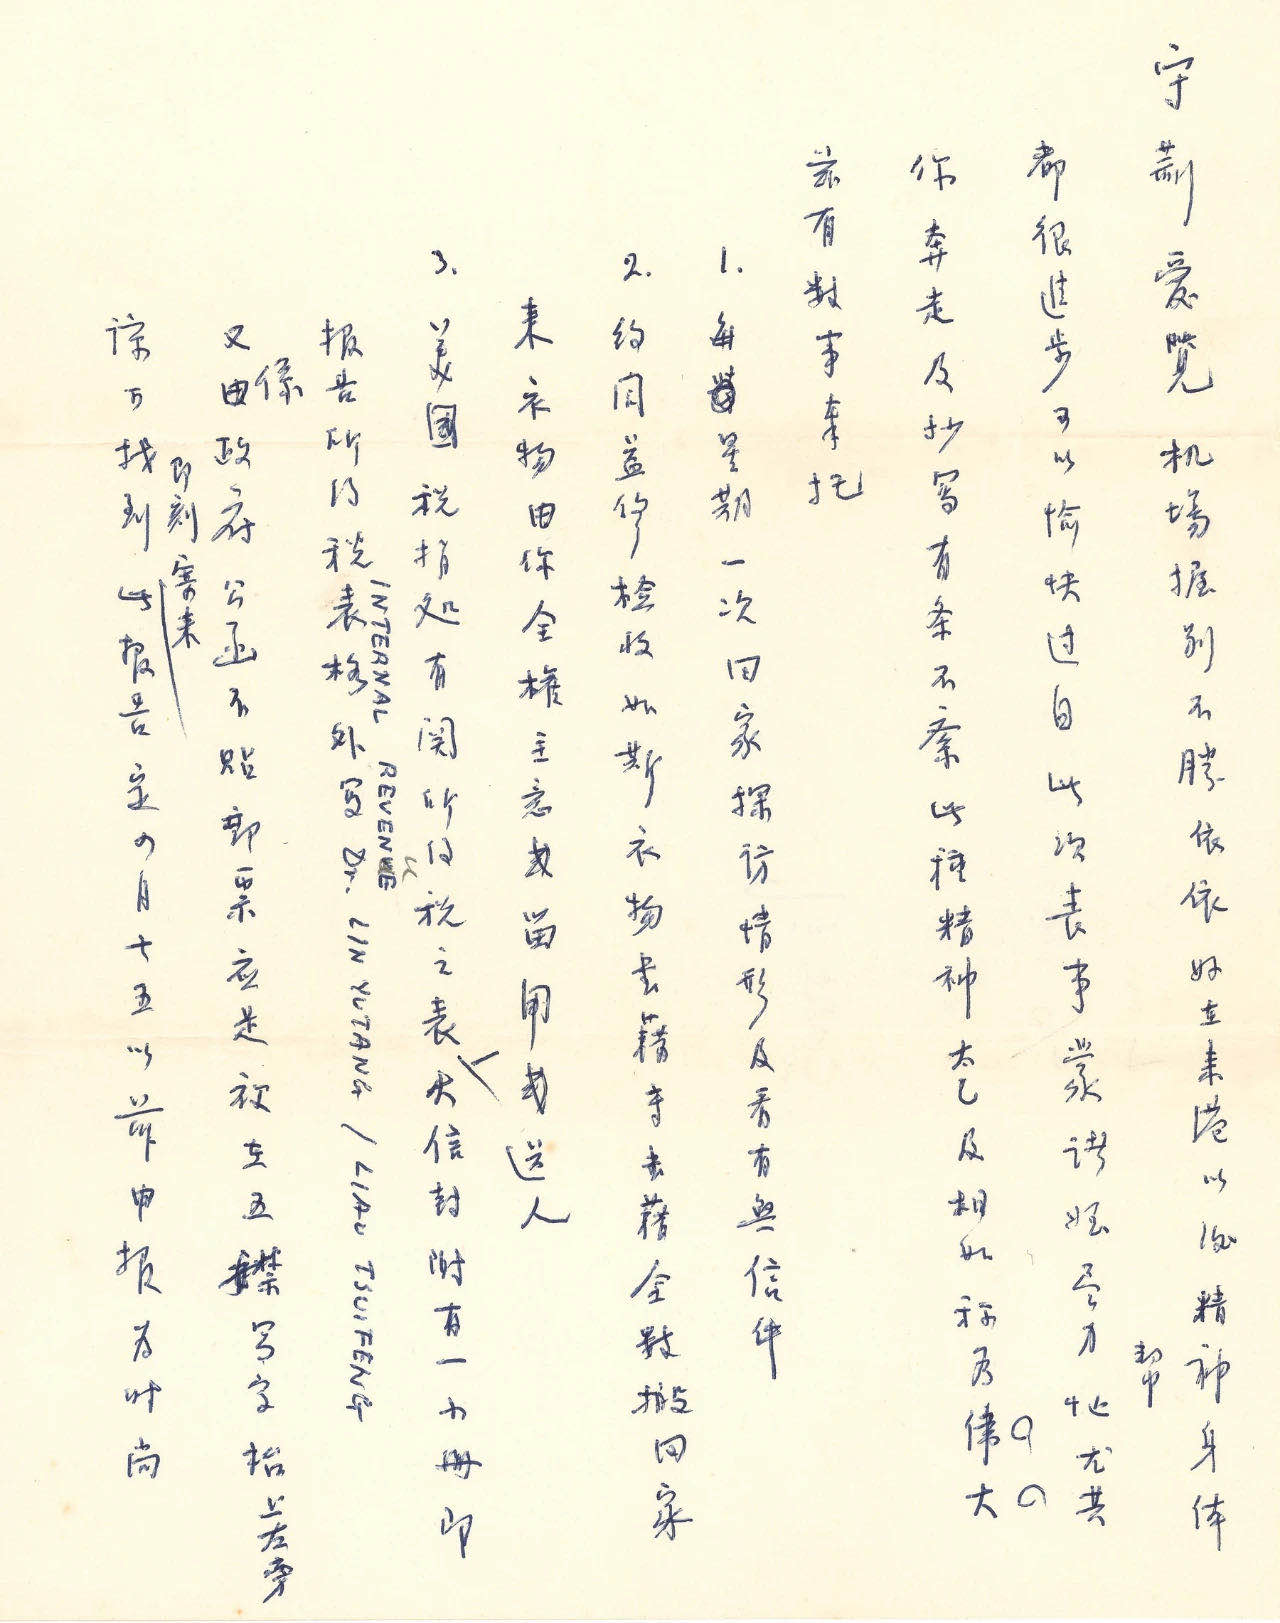 守荊愛覽 机場握别不勝依依好在来港以後精神身体
都很進步可以愉快过日此次丧事蒙諸姪尽力帮忙尤其
你奔走及抄寫有条不紊此種精神太乙及相如称为偉大
兹有数事奉托
1. 每星期一次回家探訪情形及看有無信件
2. 约同益修檢收如斯衣物書籍寺書籍全数搬回家
来衣物由你全權主意或留用或送人
3. 美國税捐处有関所得税之表大信封附有一小册即
INTERNAL REVENUE
报告所得税表格外寫 Dr. LIN YUTANG / LIAU TSUIFENG
又係由政府公函不貼郵票应是放在五樓写字枱上左旁
諒可找到即刻寄来此报告定四月十五以前申报为时尚